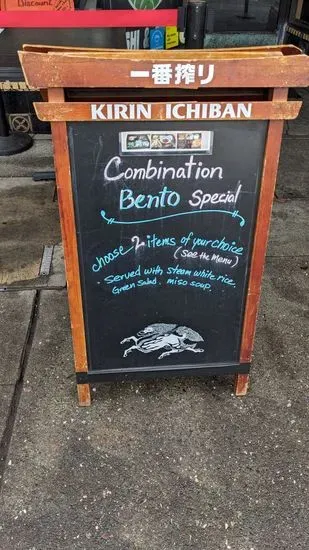 Discount
一番搾り
KIRIN ICHIBAN
Combination
Bento Special
choose 2 items of your choice
(See the Menu)
· Served with steam white rice,
Green Salad, miso soup.